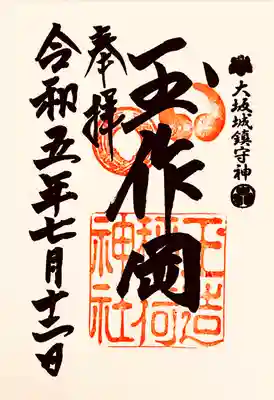 大坂城鎮守神
奉拝
玉作岡
玉造
稲荷
神社
令和五年七月十二日